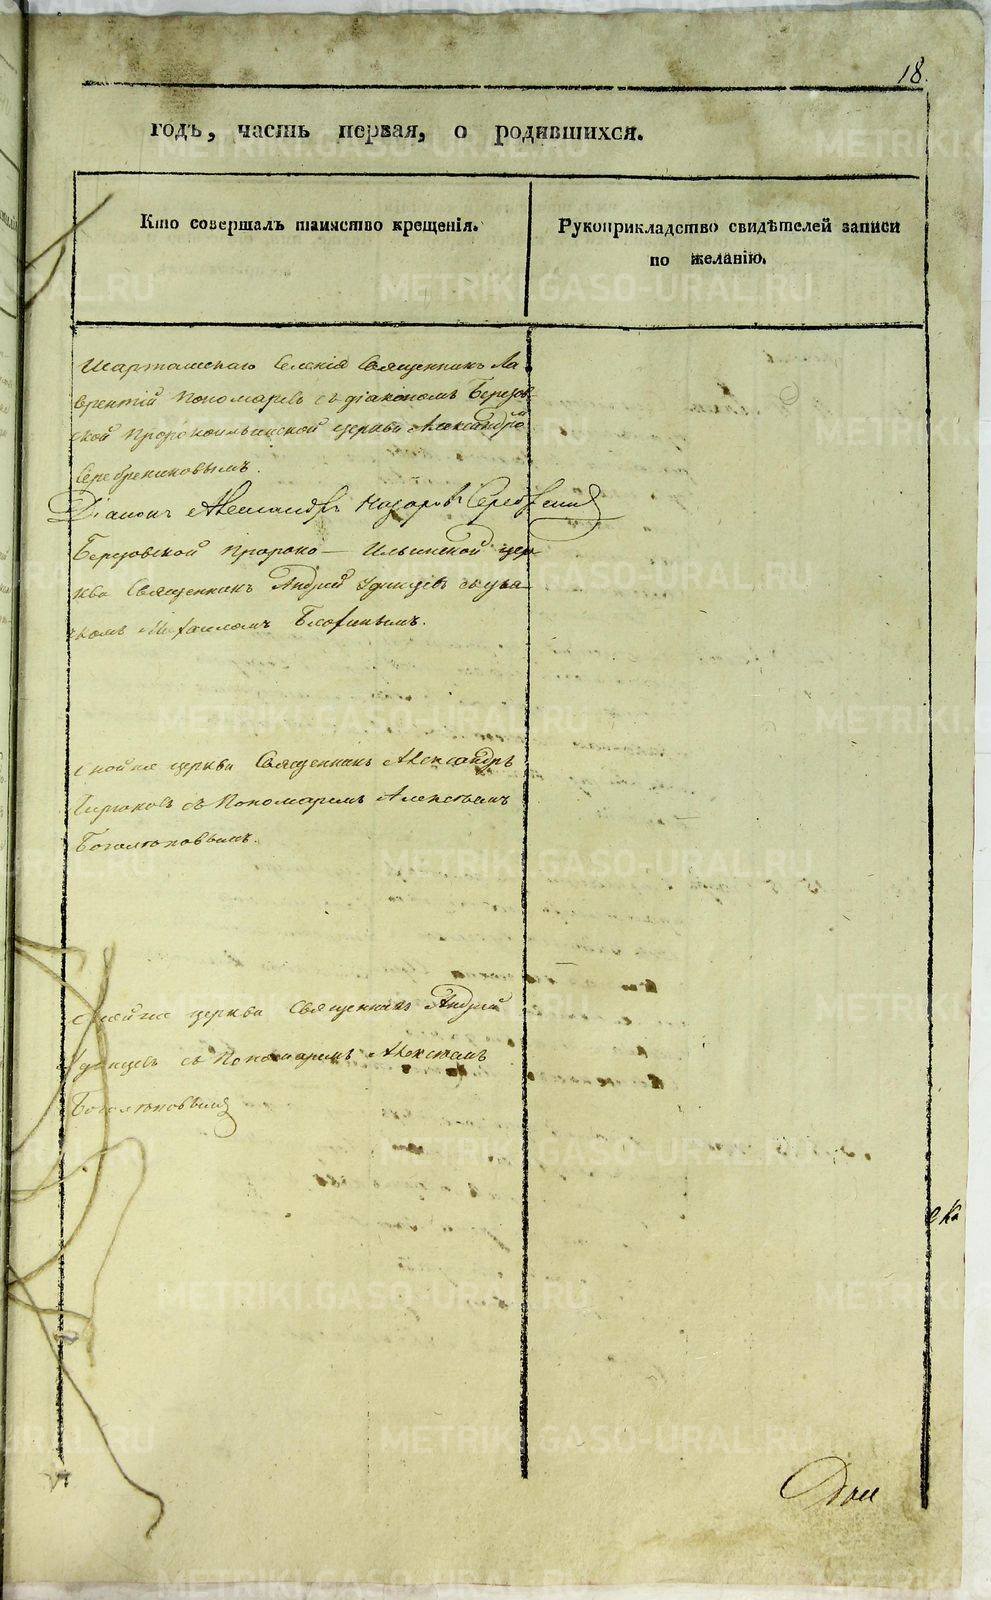 18.
годъ, часть первая, о родившихся.
Кто совершалъ таинство крещенія.
Рукоприкладство свидѣтелей записи
по желанію.
Шарташскаго Селенія Священникъ Ла-
врентій Пономаревъ съ діакономъ Березов-
ской Пророкоильинской церкви Александромъ
Серебрениковымъ.
Діаконъ Александръ
Березовской Пророко-Ильинской цер-
кви Священникъ Андрей Удинцевъ съ дья-
комъ Михаиломъ
той же церкви Священникъ Александръ
съ Пономаремъ Алексѣемъ
Боголюповымъ.
той же церкви Священникъ Андрей
Удинцевъ съ Пономаремъ Алексѣемъ
Боголюповымъ
METRIKI.GASO-URAL.RU